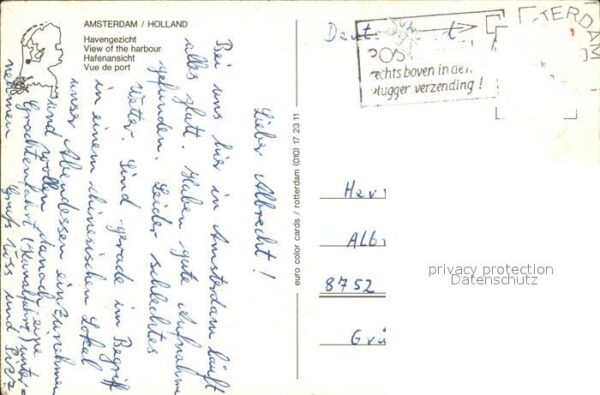 AMSTERDAM / HOLLAND
Havengezicht
View of the harbour
Hafenansicht
Vue de port
Lieber Albrecht!
Bei uns hier in Amsterdam läuft
alles glatt. Haben gute Aufnahme
gefunden. Leider schlechtes
Wetter. Sind gerade im Begriff
in einem chinesischen Lokal
unser Abendessen einzunehmen
und wollen danach eine
Grachtenfahrt (Kanalfahrt) unter=
nehmen Gruß und
euro color cards / rotterdam (010) 17 23 11
rechts boven in de
vlugger verzending!
TERDAM
Her
Alb
8752
Gr
privacy protection
Datenschutz